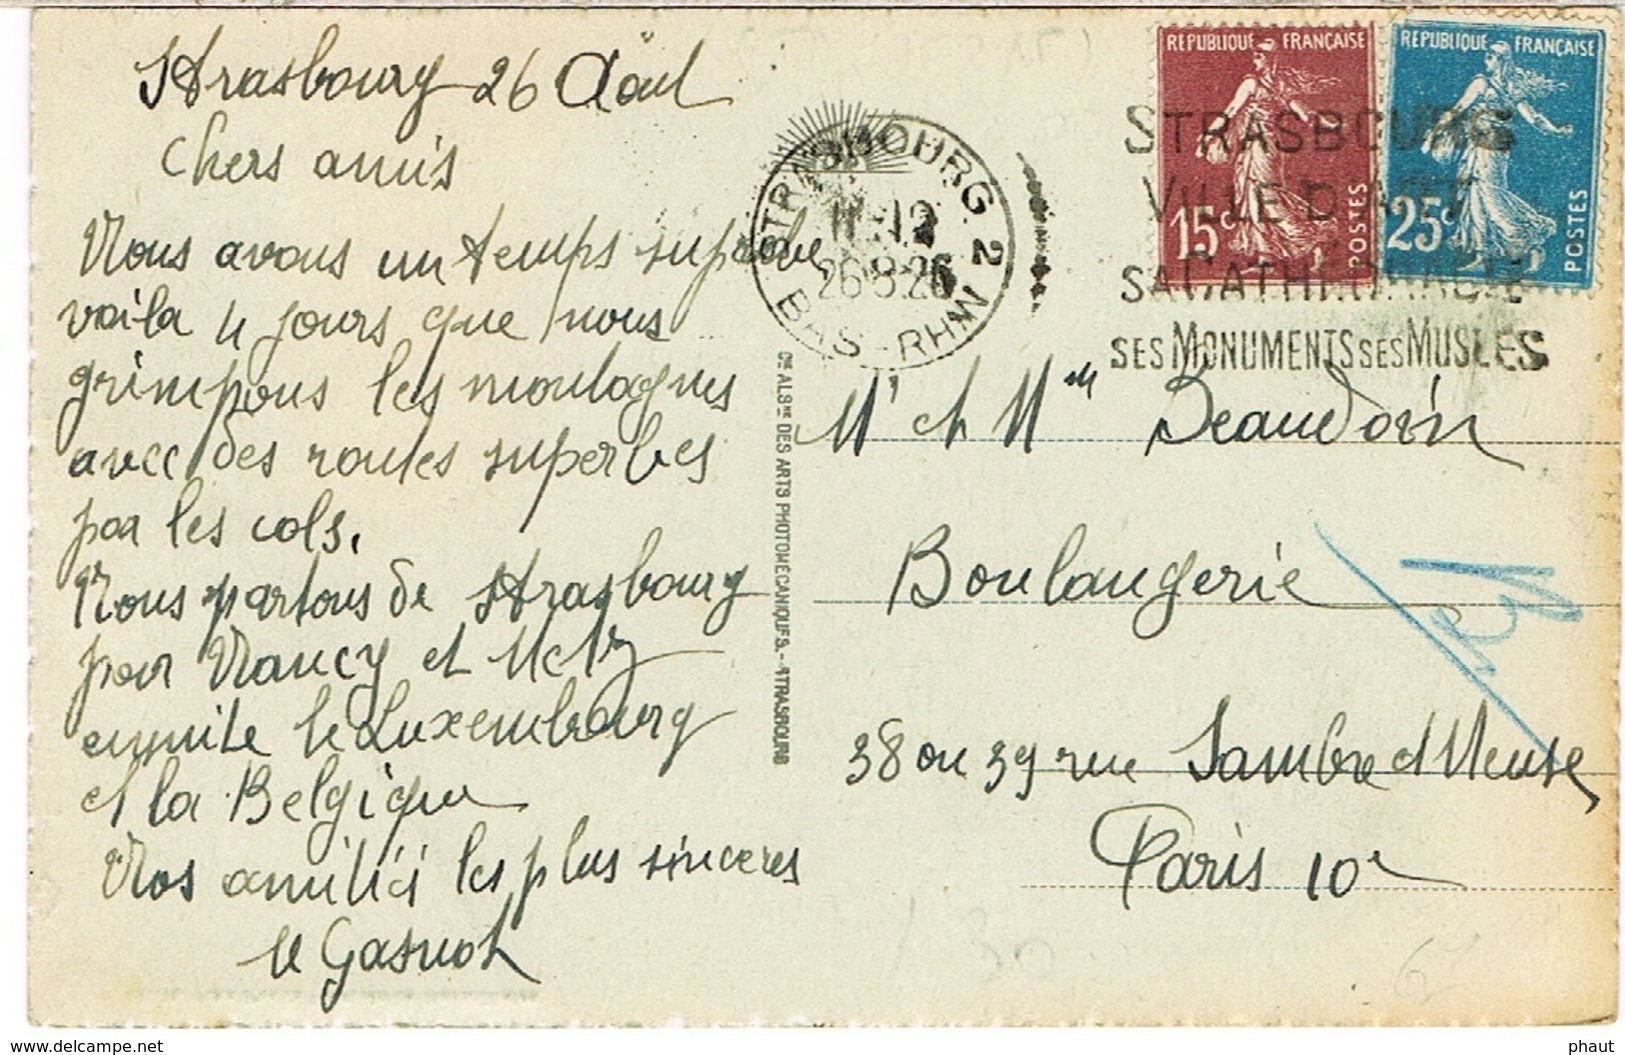 Strasbourg 26 Août
Chers amis
Nous avons un temps superbe
voila 4 jours que nous
grimpons les montagnes
avec des routes superbes
par les cols.
Nous partons de Strasbourg
pour Nancy et Metz
ensuite le Luxembourg
et la Belgique
Nos amitiés les plus sinceres
STRASBOURG 2
11-12
26-8-26
BAS-RHIN
RÉPUBLIQUE FRANÇAISE
15c
POSTES
RÉPUBLIQUE FRANÇAISE
25c
POSTES
STRASBOURG
VILLE D'ART
SA CATHÉDRALE
SES MONUMENTS SES MUSÉES
Cie ALSne DES ARTS PHOTOMÉCANIQUES.- STRASBOURG
Mr et Mme Beaudoin
Boulangerie
38 ou 39 rue Sambre et Meuse
Paris 10e
67
www.delcampe.net
phaut